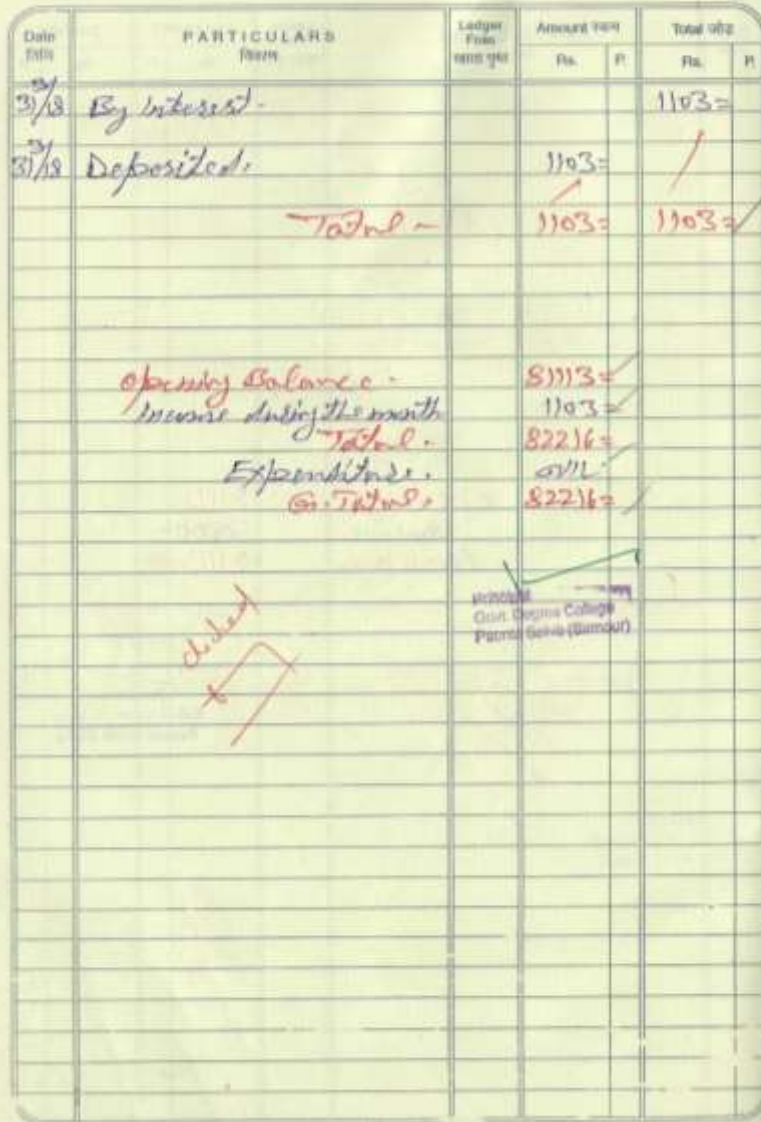 Date PARTICULARS Ledger Folio Amount रकम Total जोड़
तिथि विवरण खाता पृष्ठ Rs. P. Rs. P.
31/3/18 By Interest - 1103=
31/3/18 Deposited. 1103=
Total - 1103= 1103=
Opening Balance - 81113=
Income during the month 1103=
Total. 82216=
Expenditure. Nil
G. Total. 82216=
Principal
Govt. Degree College
Paonta Sahib (Sirmour)